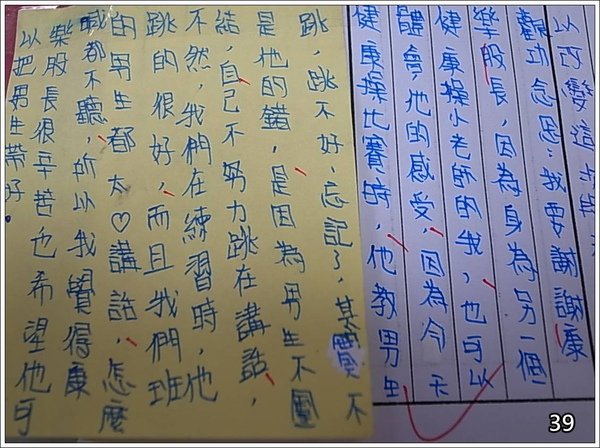 以改變這
觀功念恩:我要謝謝康
樂股長,因為身為另一個
健康操小老師的我,也可以
體會,他的感受,因為今天
健康操比賽時,他教男生
跳,跳不好,忘記了,其實不
是他的錯,是因為男生不團
結,自己不努力跳在講話,
不然,我們在練習時,他
跳的很好,而且我們班
的男生都太♡講話,怎麼
喊都不聽,所以我覺得康
樂股長很辛苦也希望他可
以把男生帶好。
39